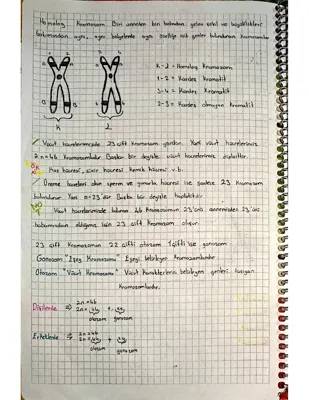 Homolog Kromozom Biri anneden biri babadan gelen şekil ve büyüklükleri
bakımından aynı, aynı bölgelerde aynı özelliğe ait genler bulunduran kromozomlar
K-L = Homolog Kromozom
1-2 = Kardeş Kromatit
3-4 = Kardeş Kromatit
2-3 = Kardeş olmayan Kromatit
K
L
Vücut hücrelerimizde 23 çift Kromozom vardır. Yani vücut hücrelerimiz
2n=46 kromozomludur. Başka bir deyişle vücut hücrelerimiz diploittir.
Kas hücresi, sinir hücresi, kemik hücresi v.b.
Üreme hücreleri olan sperm ve yumurta hücresi ise sadece 23 kromozom
bulundurur. Yani n=23'dür. Başka bir deyişle haploittir.
Vücut hücrelerimizde bulunan 46 kromozomun 23'ünü annemizden 23'ünü
babamızdan aldığımız için 23 çift kromozom oluşur.
23 çift Kromozomun 22 çifti otozom 1 çifti ise gonozom
Gonozom "Eşey Kromozomu" Eşeyi belirleyen Kromozomlardır
Otozom "Vücut Kromozomu" Vücut Karakterlerini belirleyen genleri taşıyan
Kromozomlardır.
Dişilerde ⇒ 2n=46
2n=44 + XX
otozom gonozom
Erkeklerde ⇒ 2n=46
2n=44 + XY
otozom gonozom